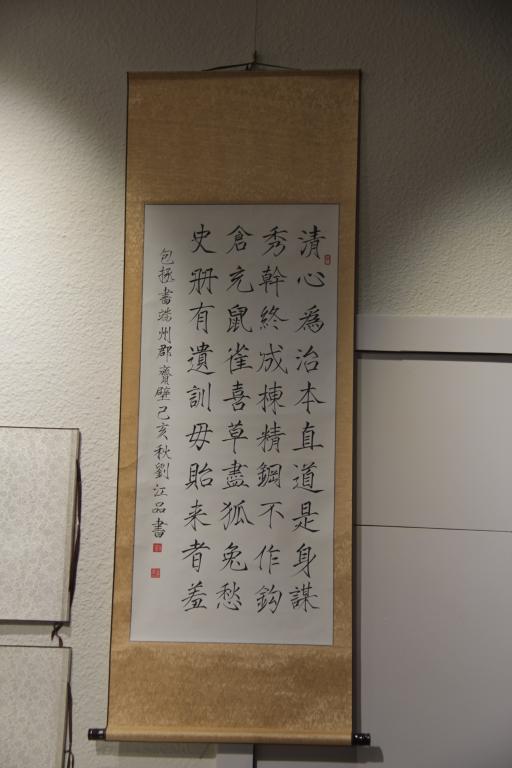 清心為治本直道是身謀
秀幹終成棟精鋼不作鈎
倉充鼠雀喜草盡狐兔愁
史册有遺訓毋貽来者羞
包拯書端州郡齋壁己亥秋劉江品書